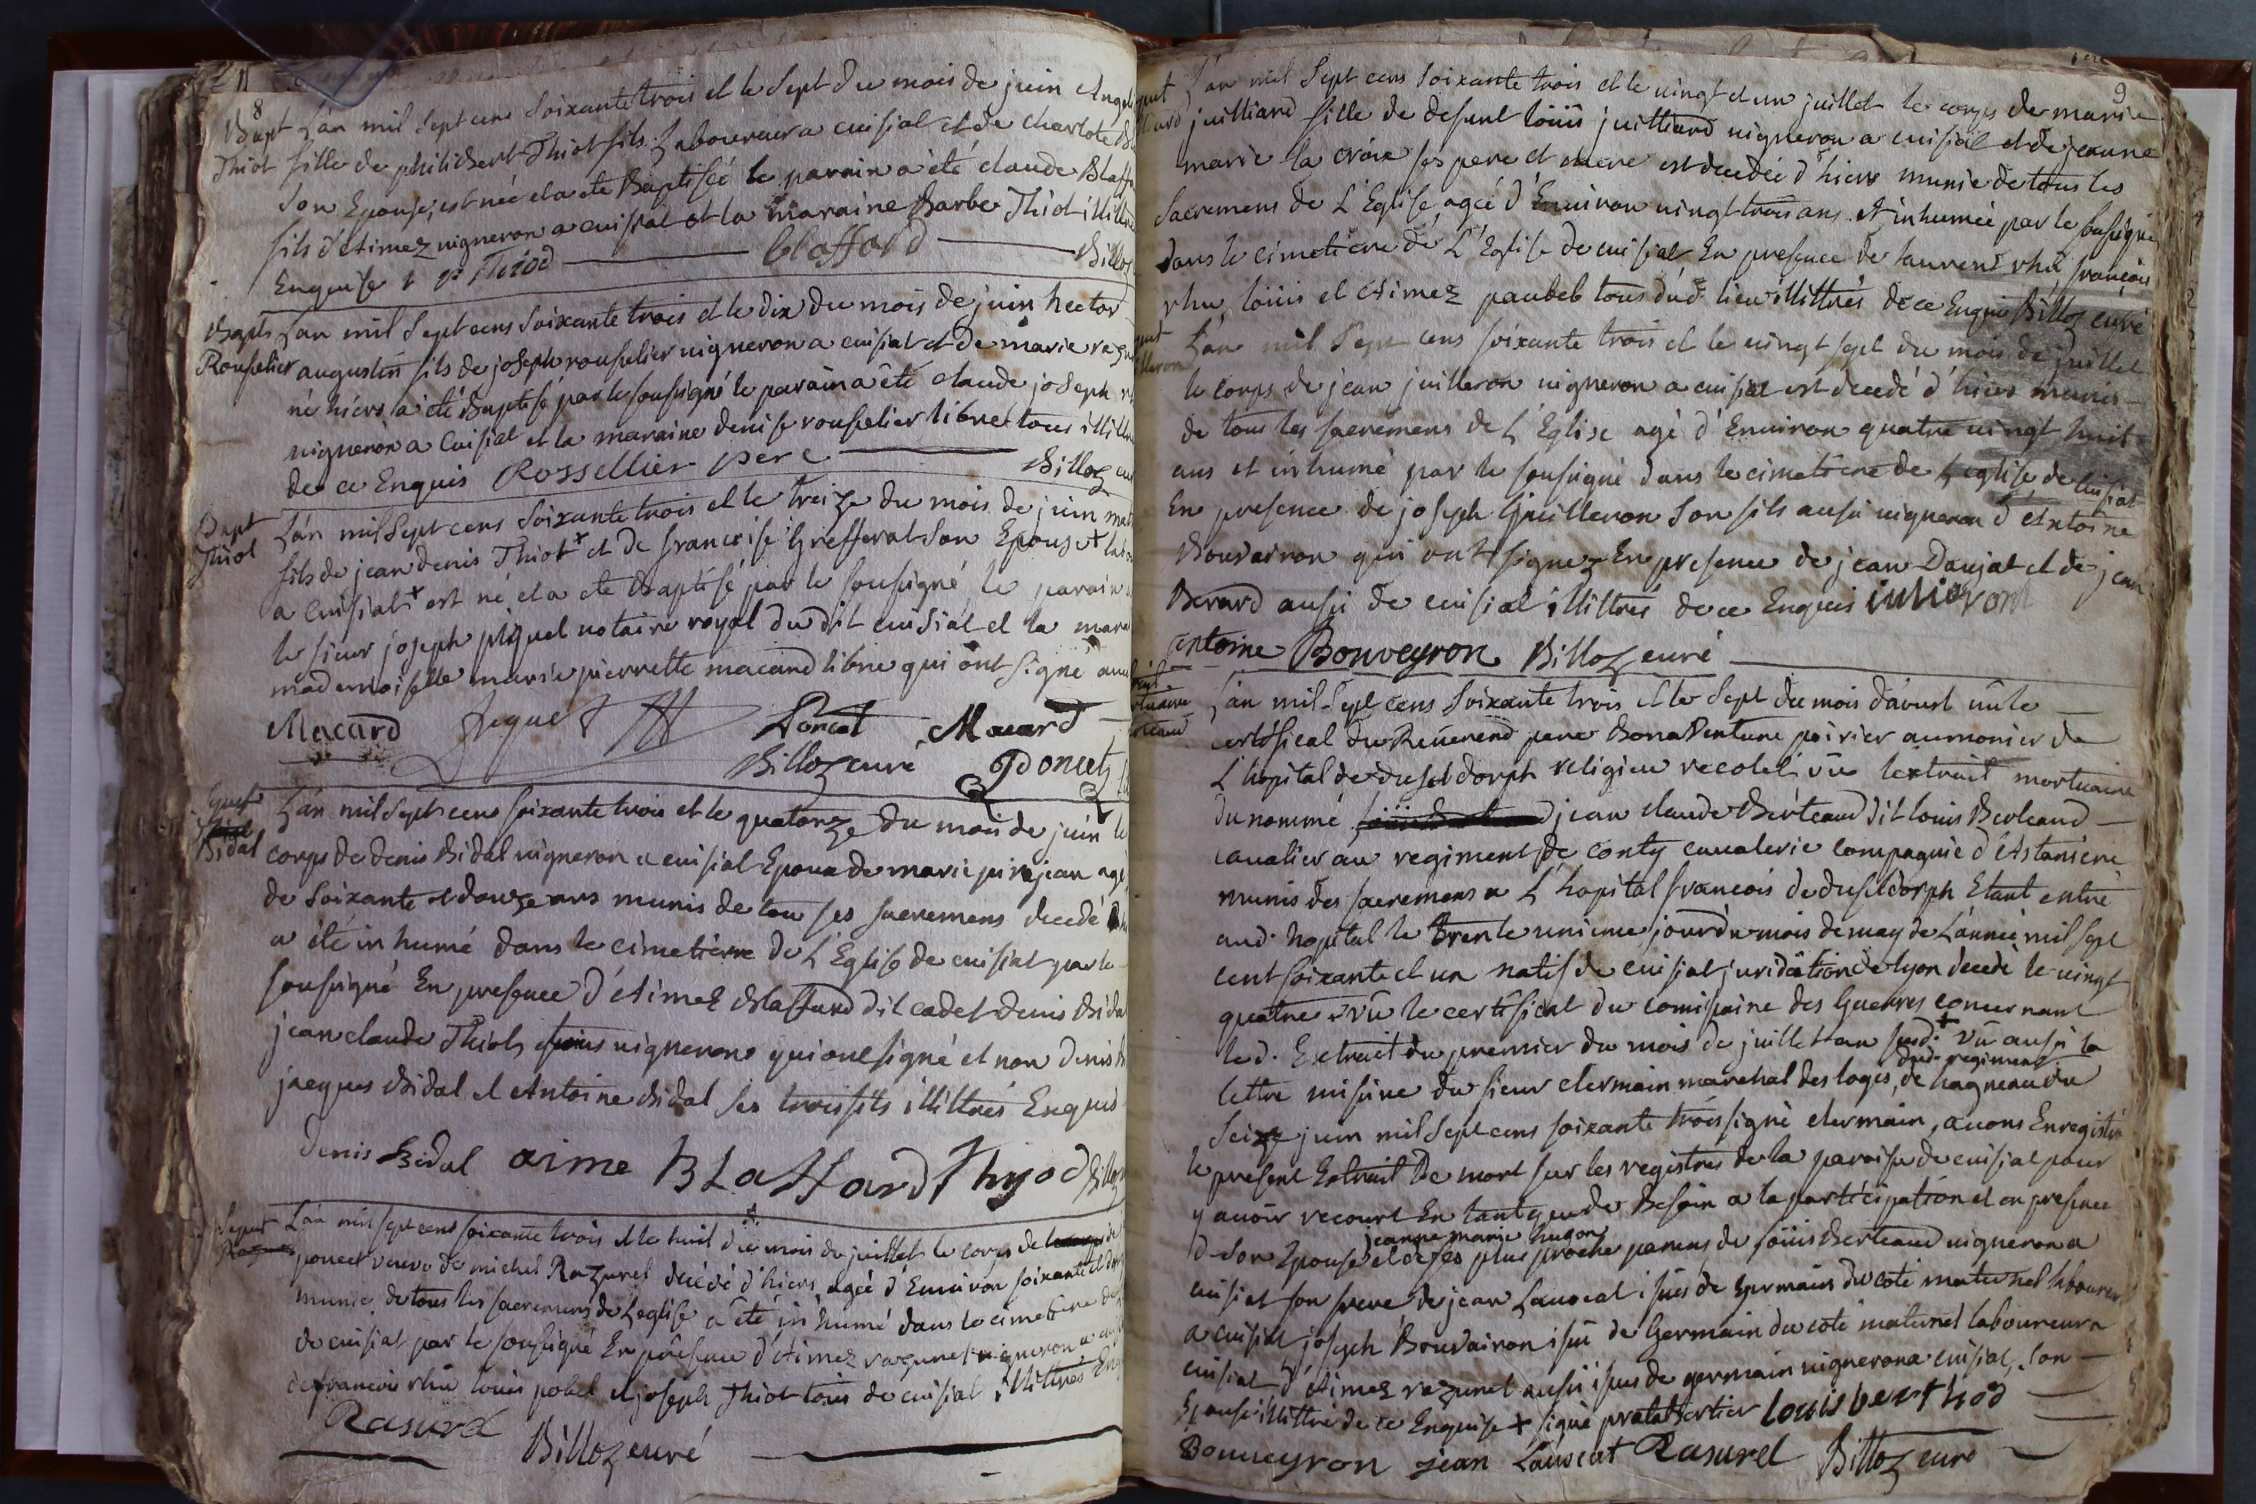 8
Bapt L'an mil sept cens soixante trois et le sept du mois de juin
Thiot fille de philibert Thiot fils Laboureur a cuisiat et de charlote
son Epouse, est née et a eté Baptisée le parain a été claude Blaff
fils d'Aimez vigneron a cuisiat et la maraine Barbe Thiot illit
Enquise p Thiod Blaffard Billoz
Bapt L'an mil sept cens soixante trois et le dix du mois de juin hector
Rouselier augustin fils de joseph rouselier vigneron a cuisiat et de marie
né hiers a été Baptisé par le sousigné le parain a été claude joseph
vigneron a Cuisiat et la maraine denise rouselier libre tous illit
de ce Enquis Rossellier pere Billoz
Bapt L'an mil Sept cens soixante trois et le treize du mois de juin
Thiot fils de jean denis Thiot + et de francoise Grefferat son Epouse +
a Cuisiat + est né et a eté Baptisé par le sousigné, le parain
le sieur joseph piquet notaire royal du dit cuisiat et la mara
mademoiselle marie pierrette macard libre qui ont signé
Macard piquet Poncet Macard
Billoz curé Poncet
L'an mil sept cens soixante trois et le quatorze du mois de juin le
Bidal corps de denis Bidal vigneron a cuisiat Epoux de marie pirajean agé
de soixante et douze ans munis de tou ses sacremens decedé
a été inhumé dans le cimetierre de l'Eglise de cuisiat par le
sousigné En presence d'Aimez Blaffard dit cadet denis Bidal
jean claude Thiot tous vignerons qui ont signé et non denis
jacques Bidal et Antoine Bidal ses trois fils illittrés Enquis
denis Bidal aime BLaffard Thyod Billoz
L'an mil sept cens soixante trois et le huit du mois de juillet le corps de
poncet veuve de michel Razurel decedé d'hiers, agée d'Environ soixante et
munie de tous les sacremens de Leglise a été inhumé dans le cimetiere
de cuisiat par le sousigné En presence d'Aimez razurel vigneron a
de francois rhu louis pobel et joseph Thiot tous de cuisiat illittrés
Rasurel
Billoz curé
9
L'an mil sept cens soixante trois et le vingt et un juillet le corps de marie
juilliard fille de defunt louis juilliard vigneron a cuisiat et de jeanne
marie la croix ses pere et mere est decedée d'hiers munie de tous les
sacremens de L'Eglise, agée d'Environ vingt trois ans et inhumée par le sousigné
dans le cimetiere de L'Eglise de cuisiat En presence de laurent rhu francois
rhu, louis et Aimez paubel tous dud. lieu illittrés de ce Enquis Billoz curé
L'an mil sept cens soixante trois et le vingt sept du mois de juillet
le corps de jean juilleron vigneron a cuisiat est decedé d'hiers munis
de tous les sacremens de L'Eglise agé d'Environ quatre vingt huit
ans et inhumé par le sousigné dans le cimetiere de L'eglise de cuisiat
En presence de joseph Guilleron son fils aussi vigneron d'Antoine
Bouvairon qui ont signez En presence de jean Daujat et de jean
Berard aussi de cuisiat illittrés de ce Enquis iulieront
antoine Bonveyron Billoz curé
L'an mil sept cens soixante trois et le sept du mois d'aoust vû le
certifical du Reverend pere BonaVenture poirier aumonier de
L'hopital de dusseldorph religieu recolet vu lextrait mortuaire
du nommé jean claude Berteaud dit louis Berteaud
cavalier au regiment de conty cavalerie compagnie d'Astaniere
munis des sacremens a L'hopital francois de duseldorph Etant entré
aud. hopital le trente unieme jour du mois de may de L'année mil sept
cent soixante et un natif de cuisiat juridiction de lyon decedé le vingt
quatre vû le certifical du comissaire des Guerres concernant
led. Extrait du premier du mois de juillet an susd. + vû aussi la
lettre missive du sieur clermain marechal des loges, dud. regiment de hagneau du
seize juin mil sept cens soixante trois signé clermain, avons Enregistré
le present Extrait de mort sur les registres de la paroisse de cuisiat pour
y avoir recourt En tant que de Besoin a la participation et en presence
de son Epouse jeanne marie hugon et de ses plus proche parens de louis Berteaud vigneron a
cuisiat son frere de jean Lauocat issus de germain du coté maternel laboureur
a cuisiat joseph Bouvairon issu de Germain du coté maternel laboureur a
cuisiat d'Aimez razurel aussi issus de germain vigneron a cuisiat, son
Epouse illittré de ce Enquise + signé louis berthod
Bonveyron jean Lauocat Rasurel Billoz curé